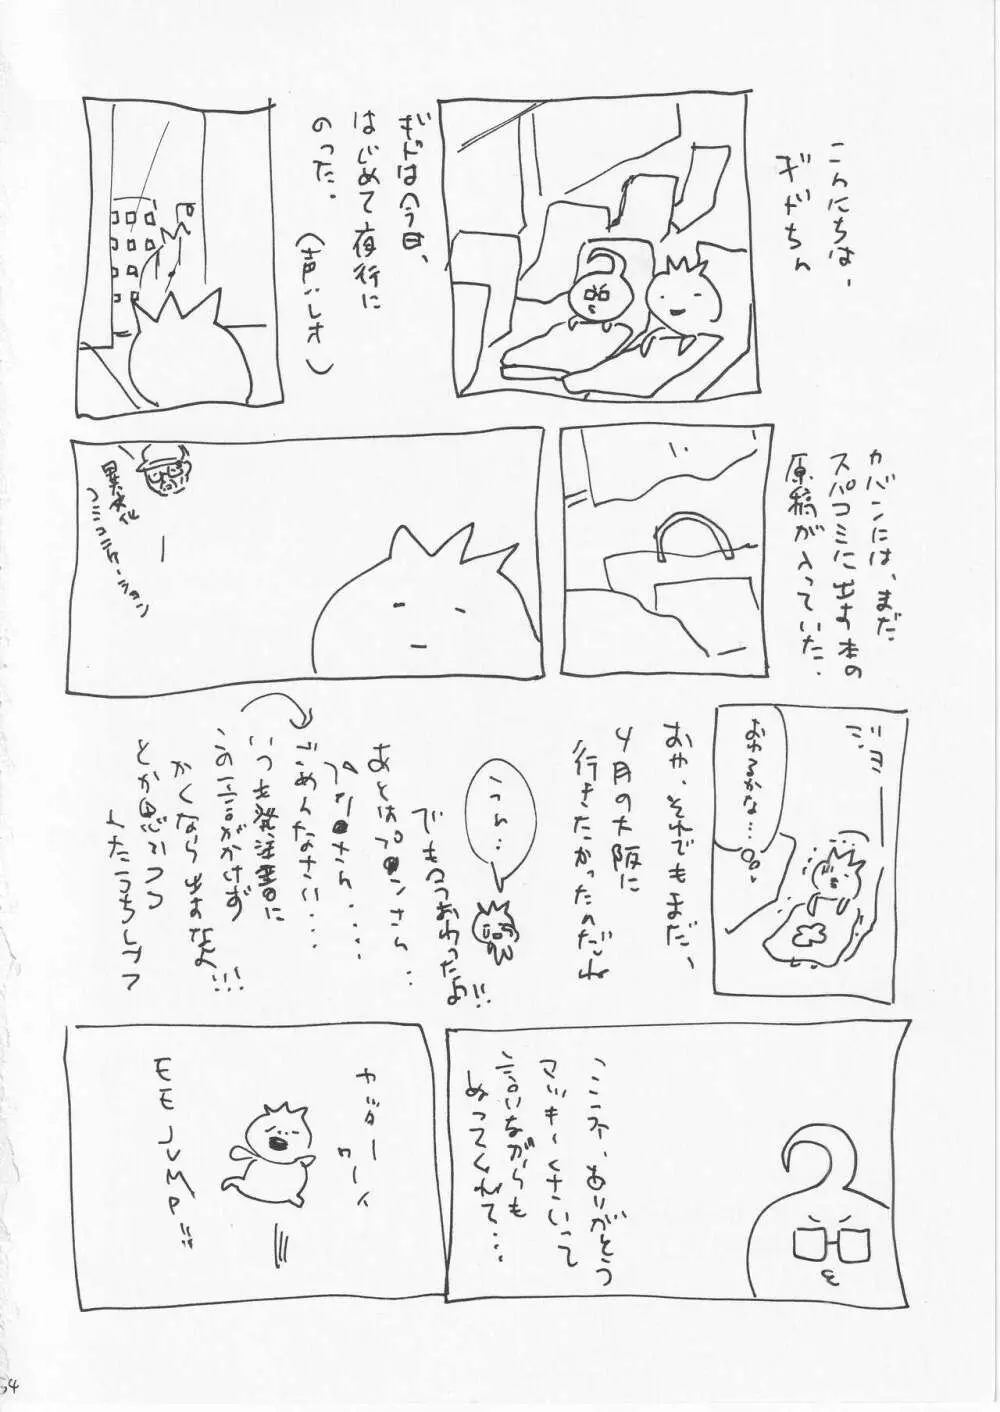 こんにちは、
ギドちん
ギドは今日、
はじめて夜行に
のった。
(声:レオ)
カバンには、まだ
スパコミに出す本の
原稿が入っていた。
コミュニケーション
おわるかな…
おや、それでもまだ、
4月の大阪に
行きたかったのだね
うっわ…
でもつおわったよ!!
あとはプ●ンさん…
プリ●さん……
ごめんなさい…
いつも発注書に
この一言がかけず
かくなら出すなよ!!!
とか思いつつ
くたうちレフフ
ここネ、ありがとう
マッキーくさいって
言いながらも
ぬってくれて…
カッター
ワーイ
EE JUMP!!